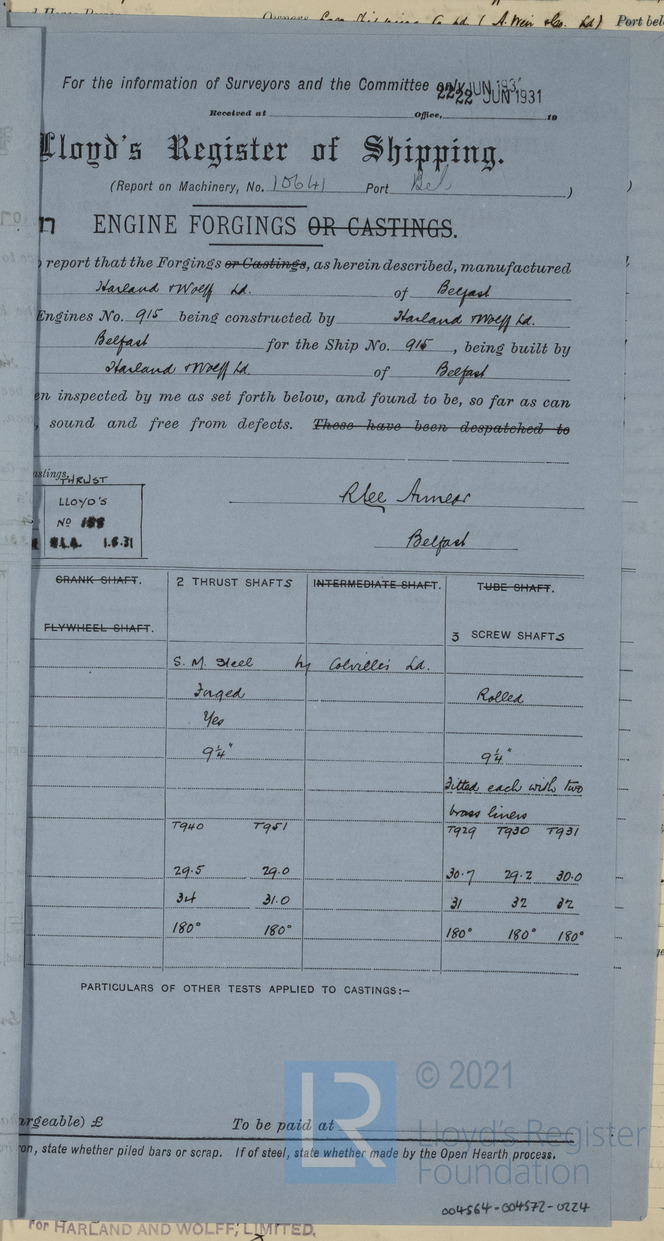 Owners Shipping Co Ld ( A. Weir & Co. Ld) Port bel
For the information of Surveyors and the Committee only
22 JUN 1931
Received at Office, 19
Lloyd's Register of Shipping.
(Report on Machinery, No. 10641 Port Bel )
ENGINE FORGINGS OR CASTINGS.
report that the Forgings or Castings, as herein described, manufactured
Harland & Wolff Ld. of Belfast
Engines No. 915 being constructed by Harland & Wolff Ld.
Belfast for the Ship No. 915, being built by
Harland & Wolff Ld of Belfast
en inspected by me as set forth below, and found to be, so far as can
, sound and free from defects. These have been despatched to
astings.
THRUST
LLOYD'S
No 188
R.L.A. 1.6.31
R Lee Amess
Belfast
CRANK SHAFT. 2 THRUST SHAFTS INTERMEDIATE SHAFT. TUBE SHAFT.
FLYWHEEL SHAFT. 3 SCREW SHAFTS
S. M. Steel by Colville's Ld.
Forged Rolled
Yes
9¼" 9¼"
Fitted each with two
brass liners
T940 T951 T929 T930 T931
29.5 29.0 30.7 29.2 30.0
34 31.0 31 32 32
180° 180° 180° 180° 180°
PARTICULARS OF OTHER TESTS APPLIED TO CASTINGS:—
argeable) £ To be paid at
ron, state whether piled bars or scrap. If of steel, state whether made by the Open Hearth process.
LR
© 2021
Lloyd's Register
Foundation
004564-004572-0224
For HARLAND AND WOLFF, LIMITED.